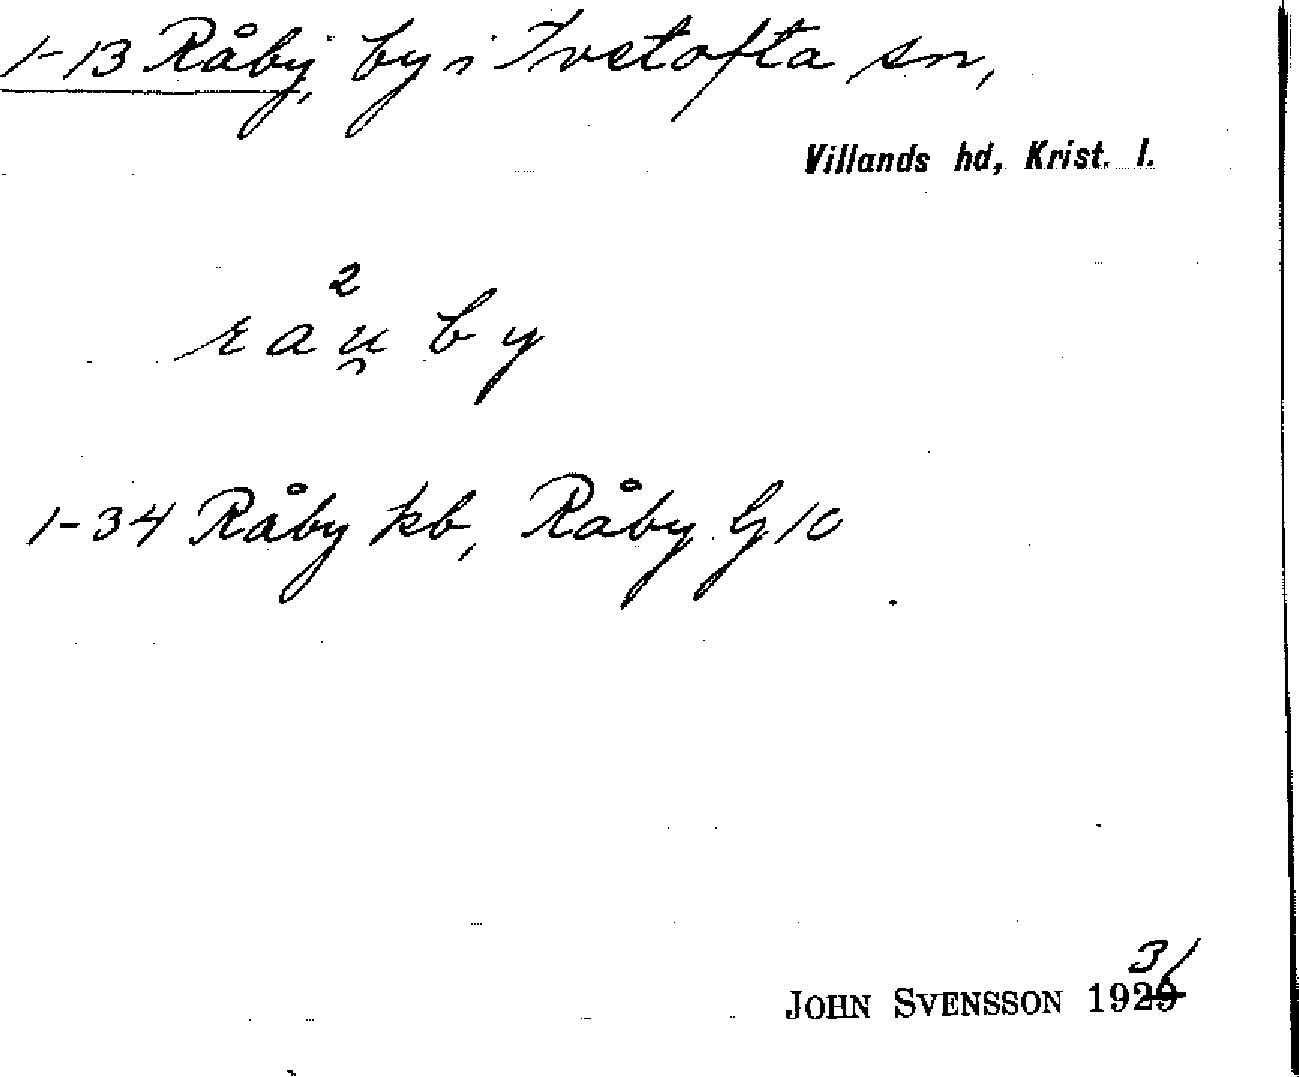 1-13 Råby, by i Ivetofta sn,
Villands hd, Krist. l.
2
rau̯by
1-34 Råby kb, Råby G 10
31
JOHN SVENSSON 1929